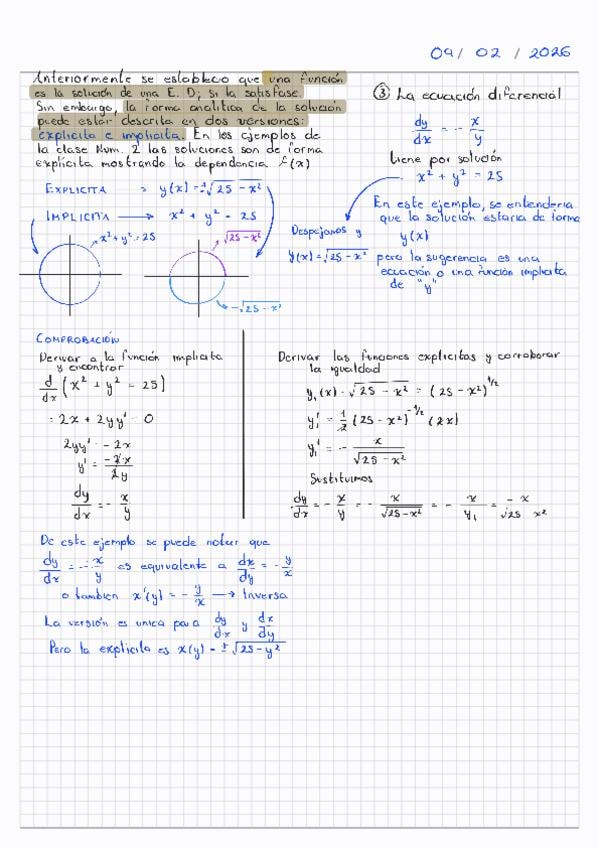 09/ 02 / 2026
Anteriormente se establecio que una función
es la solución de una E. D; si la satisface.
Sin embargo, la forma analitica de la solución
puede estar descrita en dos versiones:
explicita e implicita. En los ejemplos de
la clase Num. 2 las soluciones son de forma
explícita mostrando la dependencia f(x)
EXPLICITA → y(x) = ±√25 - x²
IMPLICITA → x² + y² = 25
x² + y² = 25
√25 - x²
-√25 - x²
③ La ecuación diferencial
dy/dx = - x/y
tiene por solución
x² + y² = 25
En este ejemplo, se entenderia
que la solución estaria de forma
y(x)
Despejamos y
y(x) = √25 - x² pero la sugerencia es una
ecuación o una función implicita
de "y"
COMPROBACIÓN
Derivar a la función implicita
y encontrar
d/dx (x² + y² = 25)
= 2x + 2yy' = 0
2yy' = - 2x
y' = -2x/2y
dy/dx = - x/y
Derivar las funciones explicitas y corroborar
la igualdad
y₁(x) = √25 - x² = (25 - x²)^1/2
y₁' = 1/2 (25 - x²)^-1/2 (2x)
y₁' = - x/√25 - x²
Sustituimos
dy/dx = - x/y = - x/√25-x² = - x/y₁ = -x/√25 x²
De este ejemplo se puede notar que
dy/dx = - x/y es equivalente a dx/dy = - y/x
o tambien x'(y) = - y/x → Inversa
La versión es unica para dy/dx y dx/dy
Pero la explicita es x(y) = ± √25 - y²